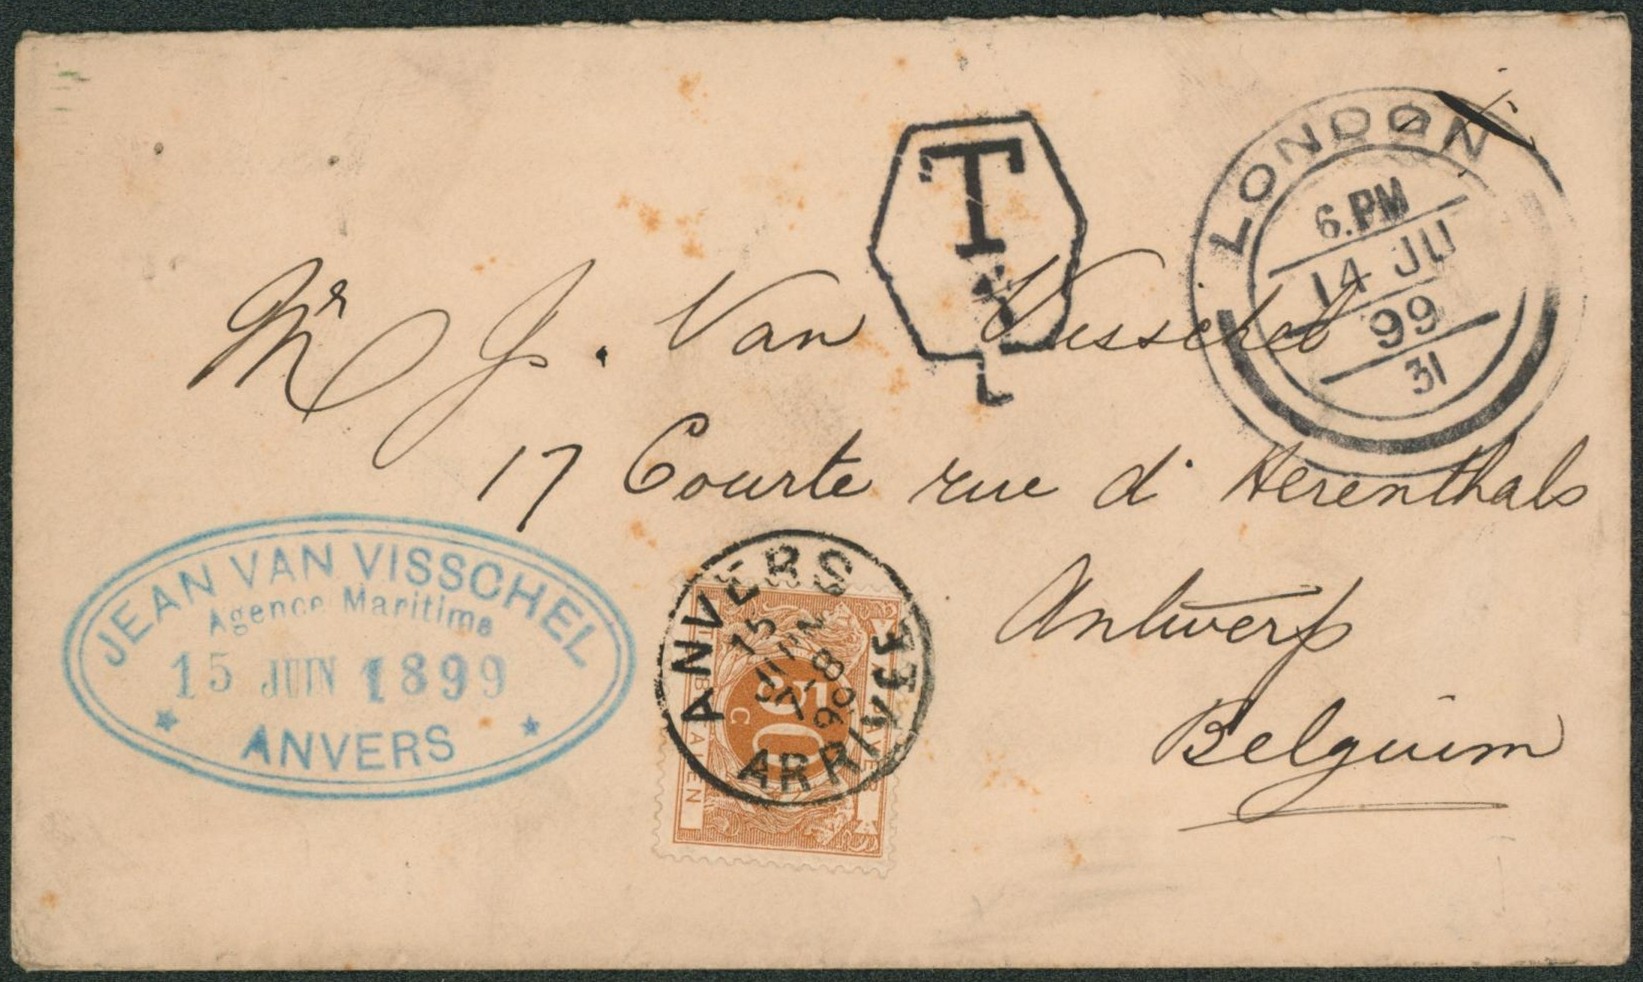 LONDON
6.PM
14 JU
99
31
T
L
Mr J. Van Visschel
17 Courte rue d' Herenthals
Antwerp
Belguim
JEAN VAN VISSCHEL
Agence Maritime
15 JUIN 1899
ANVERS
ANVERS
15
JUIN
ARRIVÉE
50
C